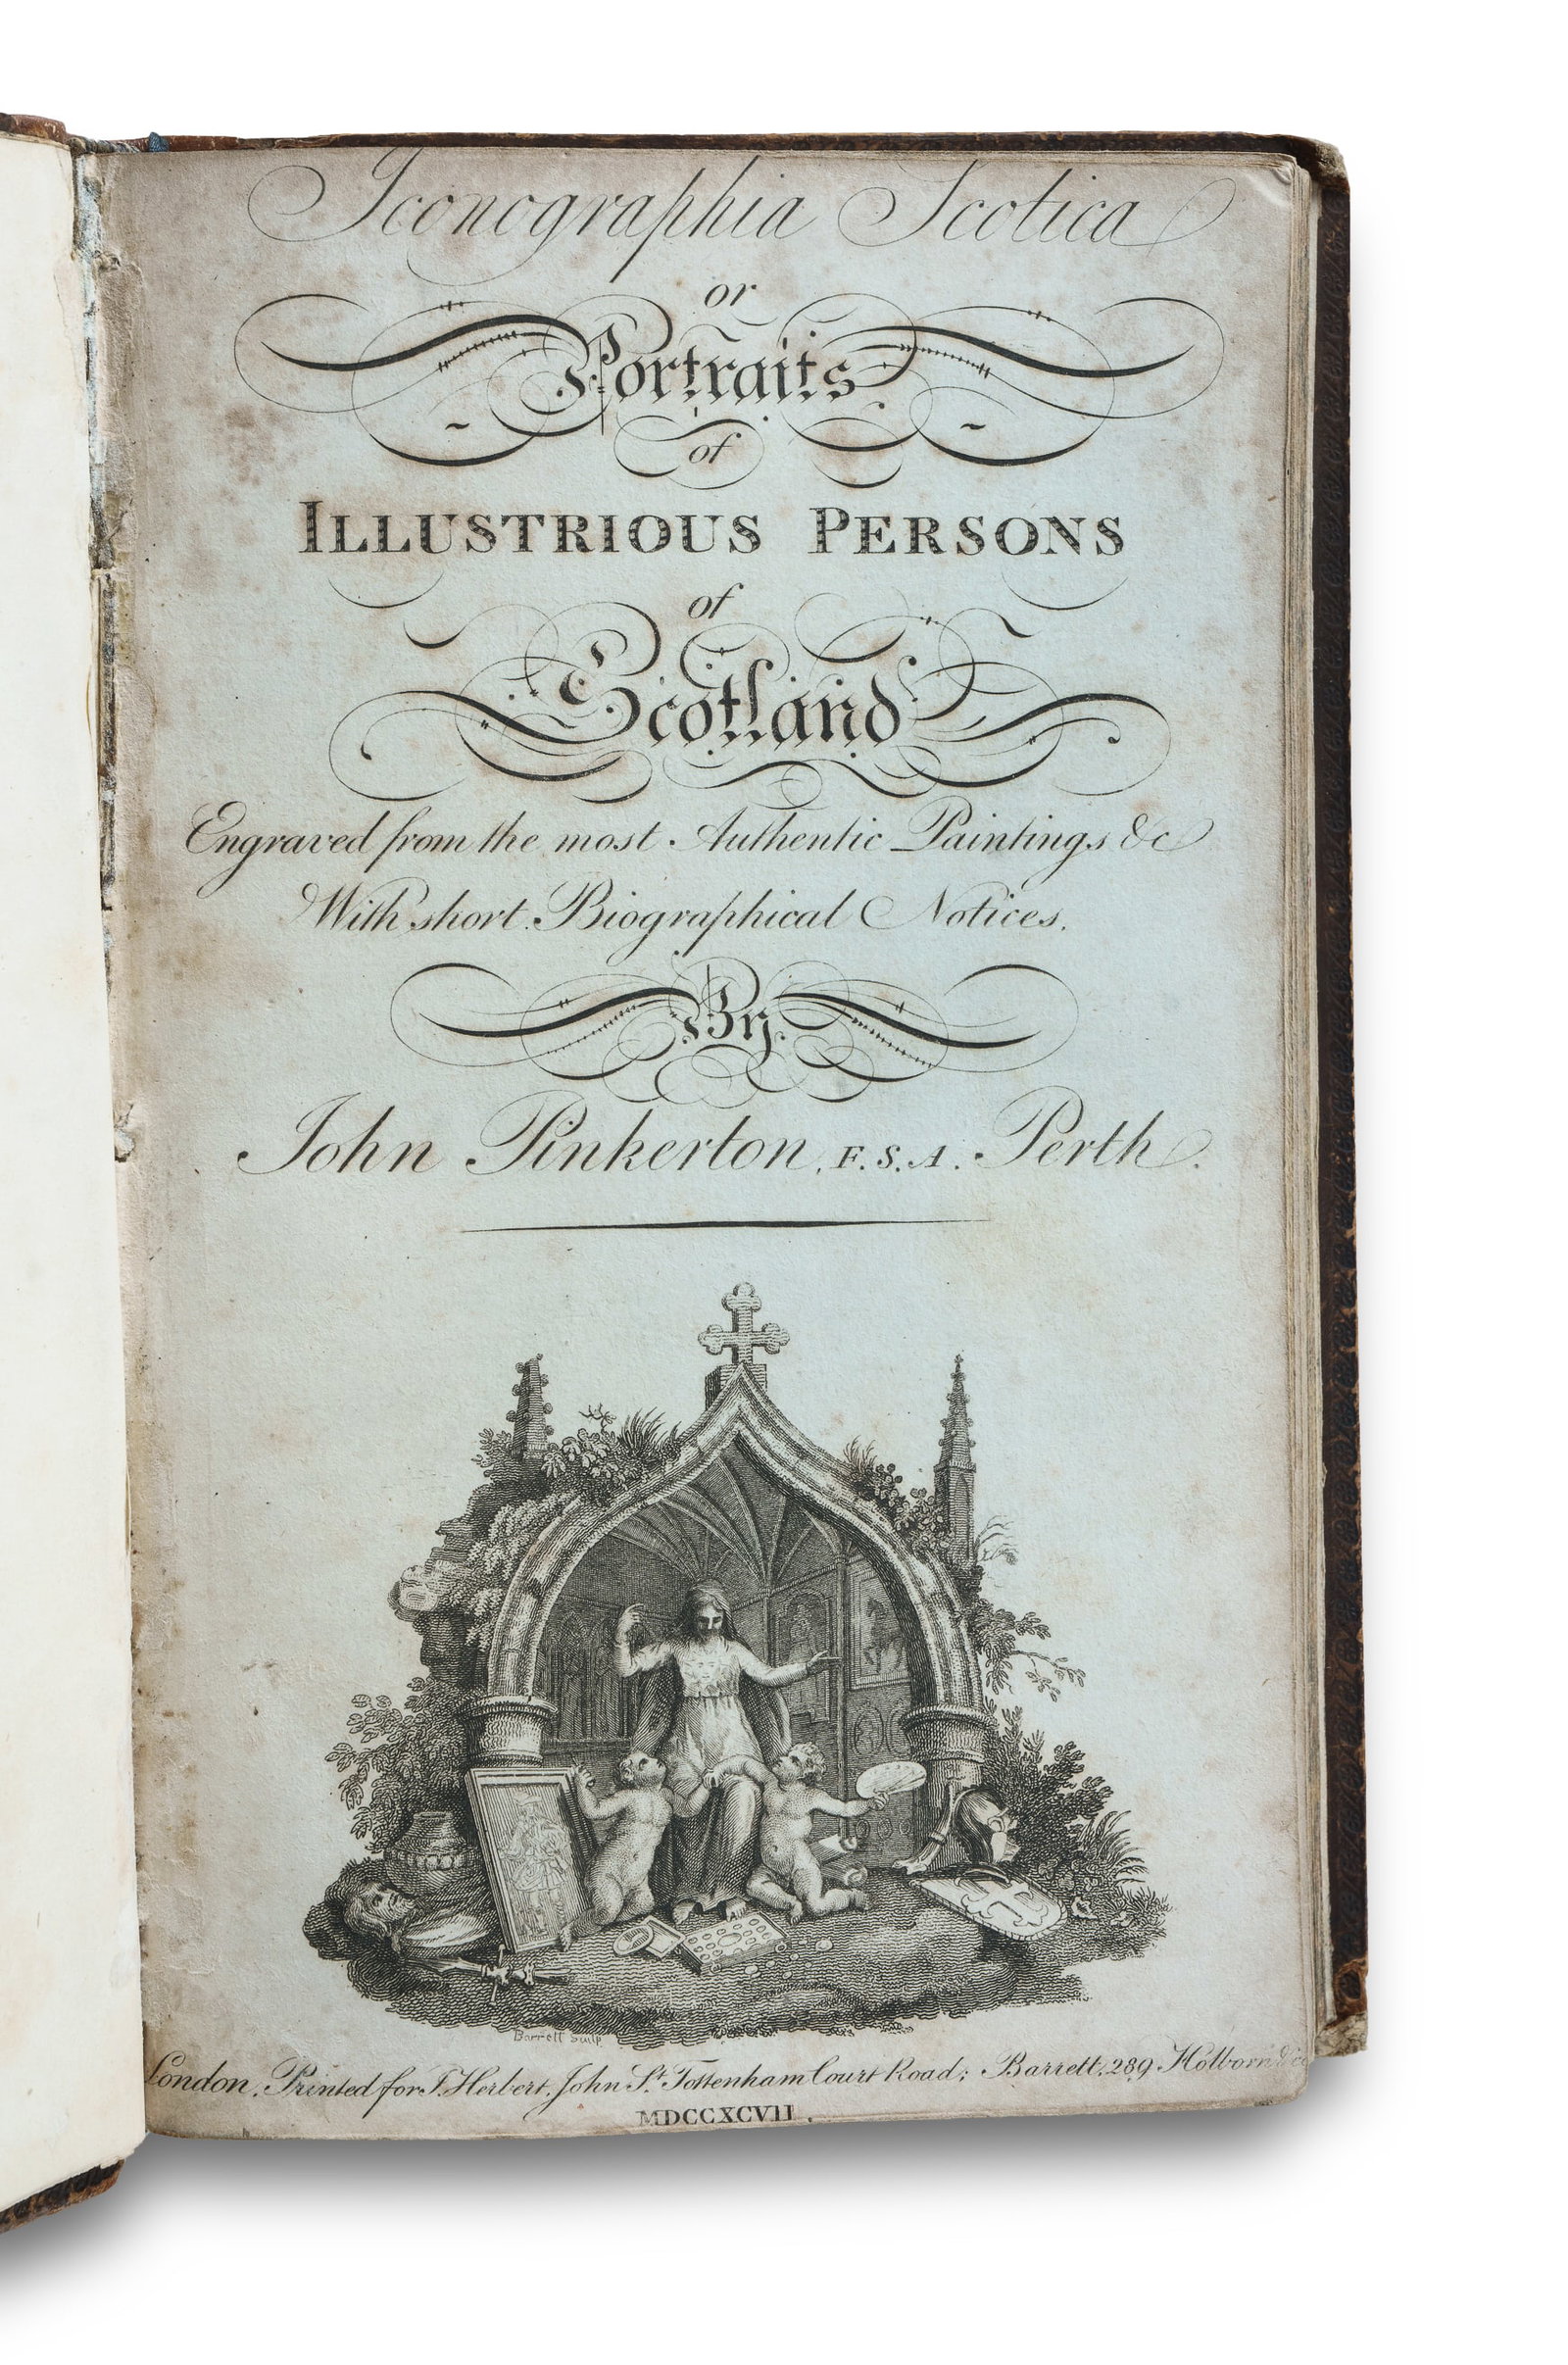 Iconographia Scotica
or
Portraits
of
ILLUSTRIOUS PERSONS
of
Scotland
Engraved from the most Authentic Paintings &c
With short Biographical Notices.
By
John Pinkerton, F.S.A. Perth.
Barrett Sculp
London, Printed for I. Herbert, John St. Tottenham Court Road; Barrett, 289 Holborn &c
MDCCXCVII.